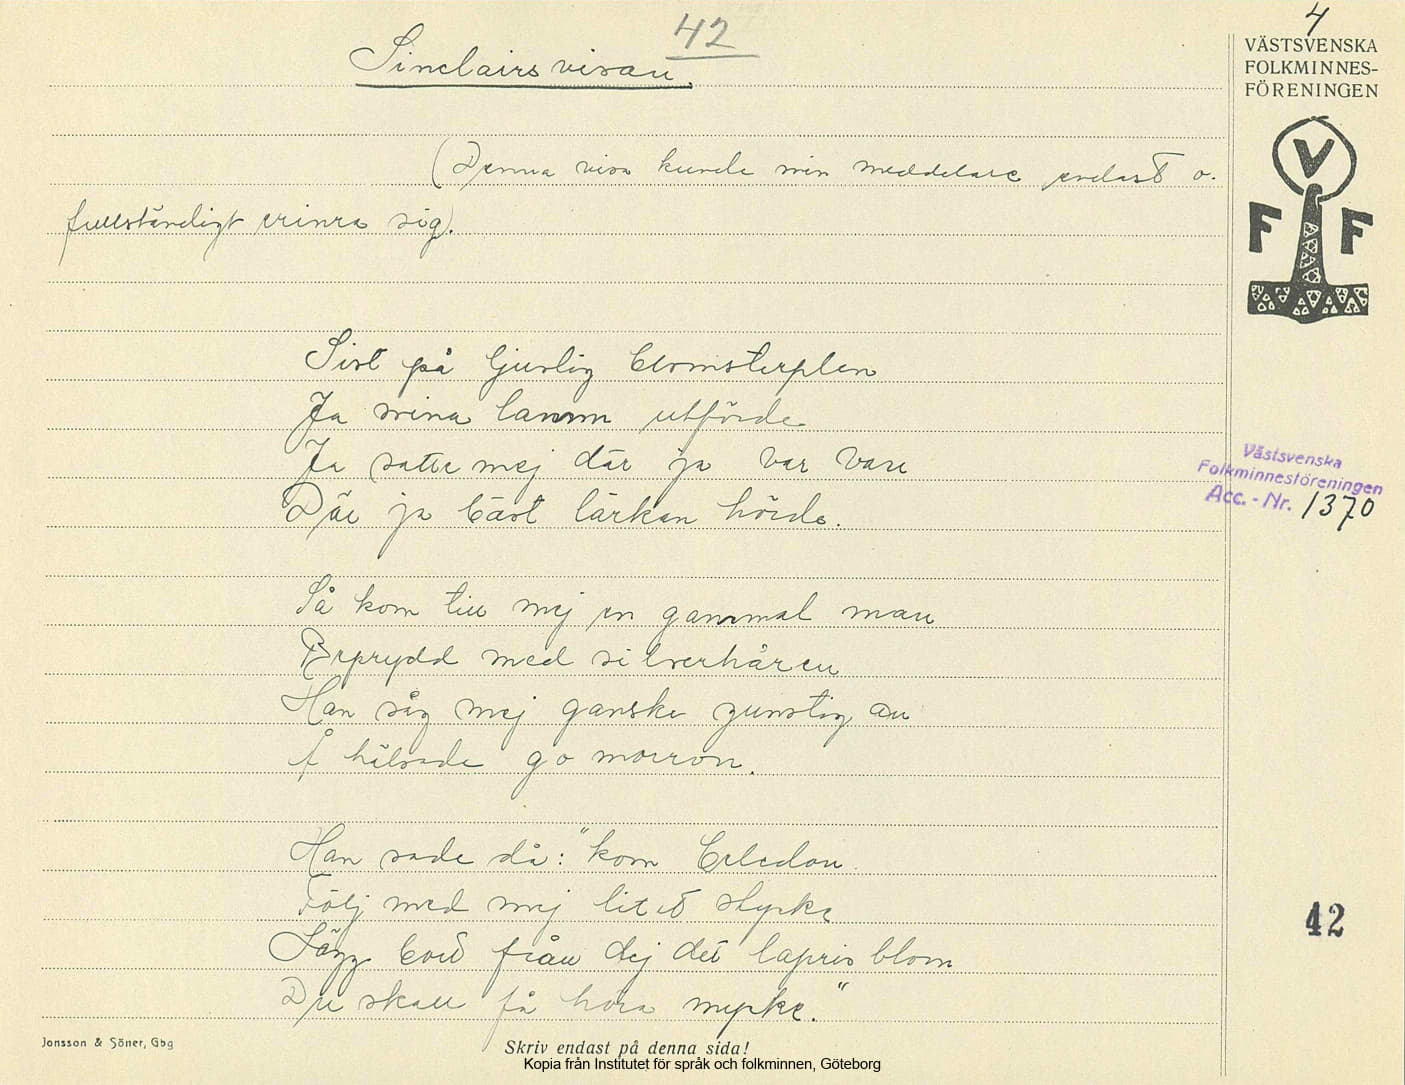 42
4
Sinclairsvisan.
VÄSTSVENSKA
FOLKMINNES-
FÖRENINGEN
(Denna visa kunde min meddelare endast o-
fullständigt erinra sig).
V
F F
Sist på ljuvlig blomsterplan
Ja mina lamm utförde
Ja satte mej där ja var van
Där ja bäst lärkan hörde.
Västsvenska
Folkminnesföreningen
Acc. - Nr. 1370
Så kom till mej en gammal man
Beprydd med silverhåren
Han såg mej ganske gunstig an
Å hälsade go morron.
Han sade då: "kom Celedon
Följ med mej litet stycke
Lägg bort från dej det lapris blom
Du skall få höra mycke."
42
Jonsson & Söner, Gbg
Skriv endast på denna sida!
Kopia från Institutet för språk och folkminnen, Göteborg